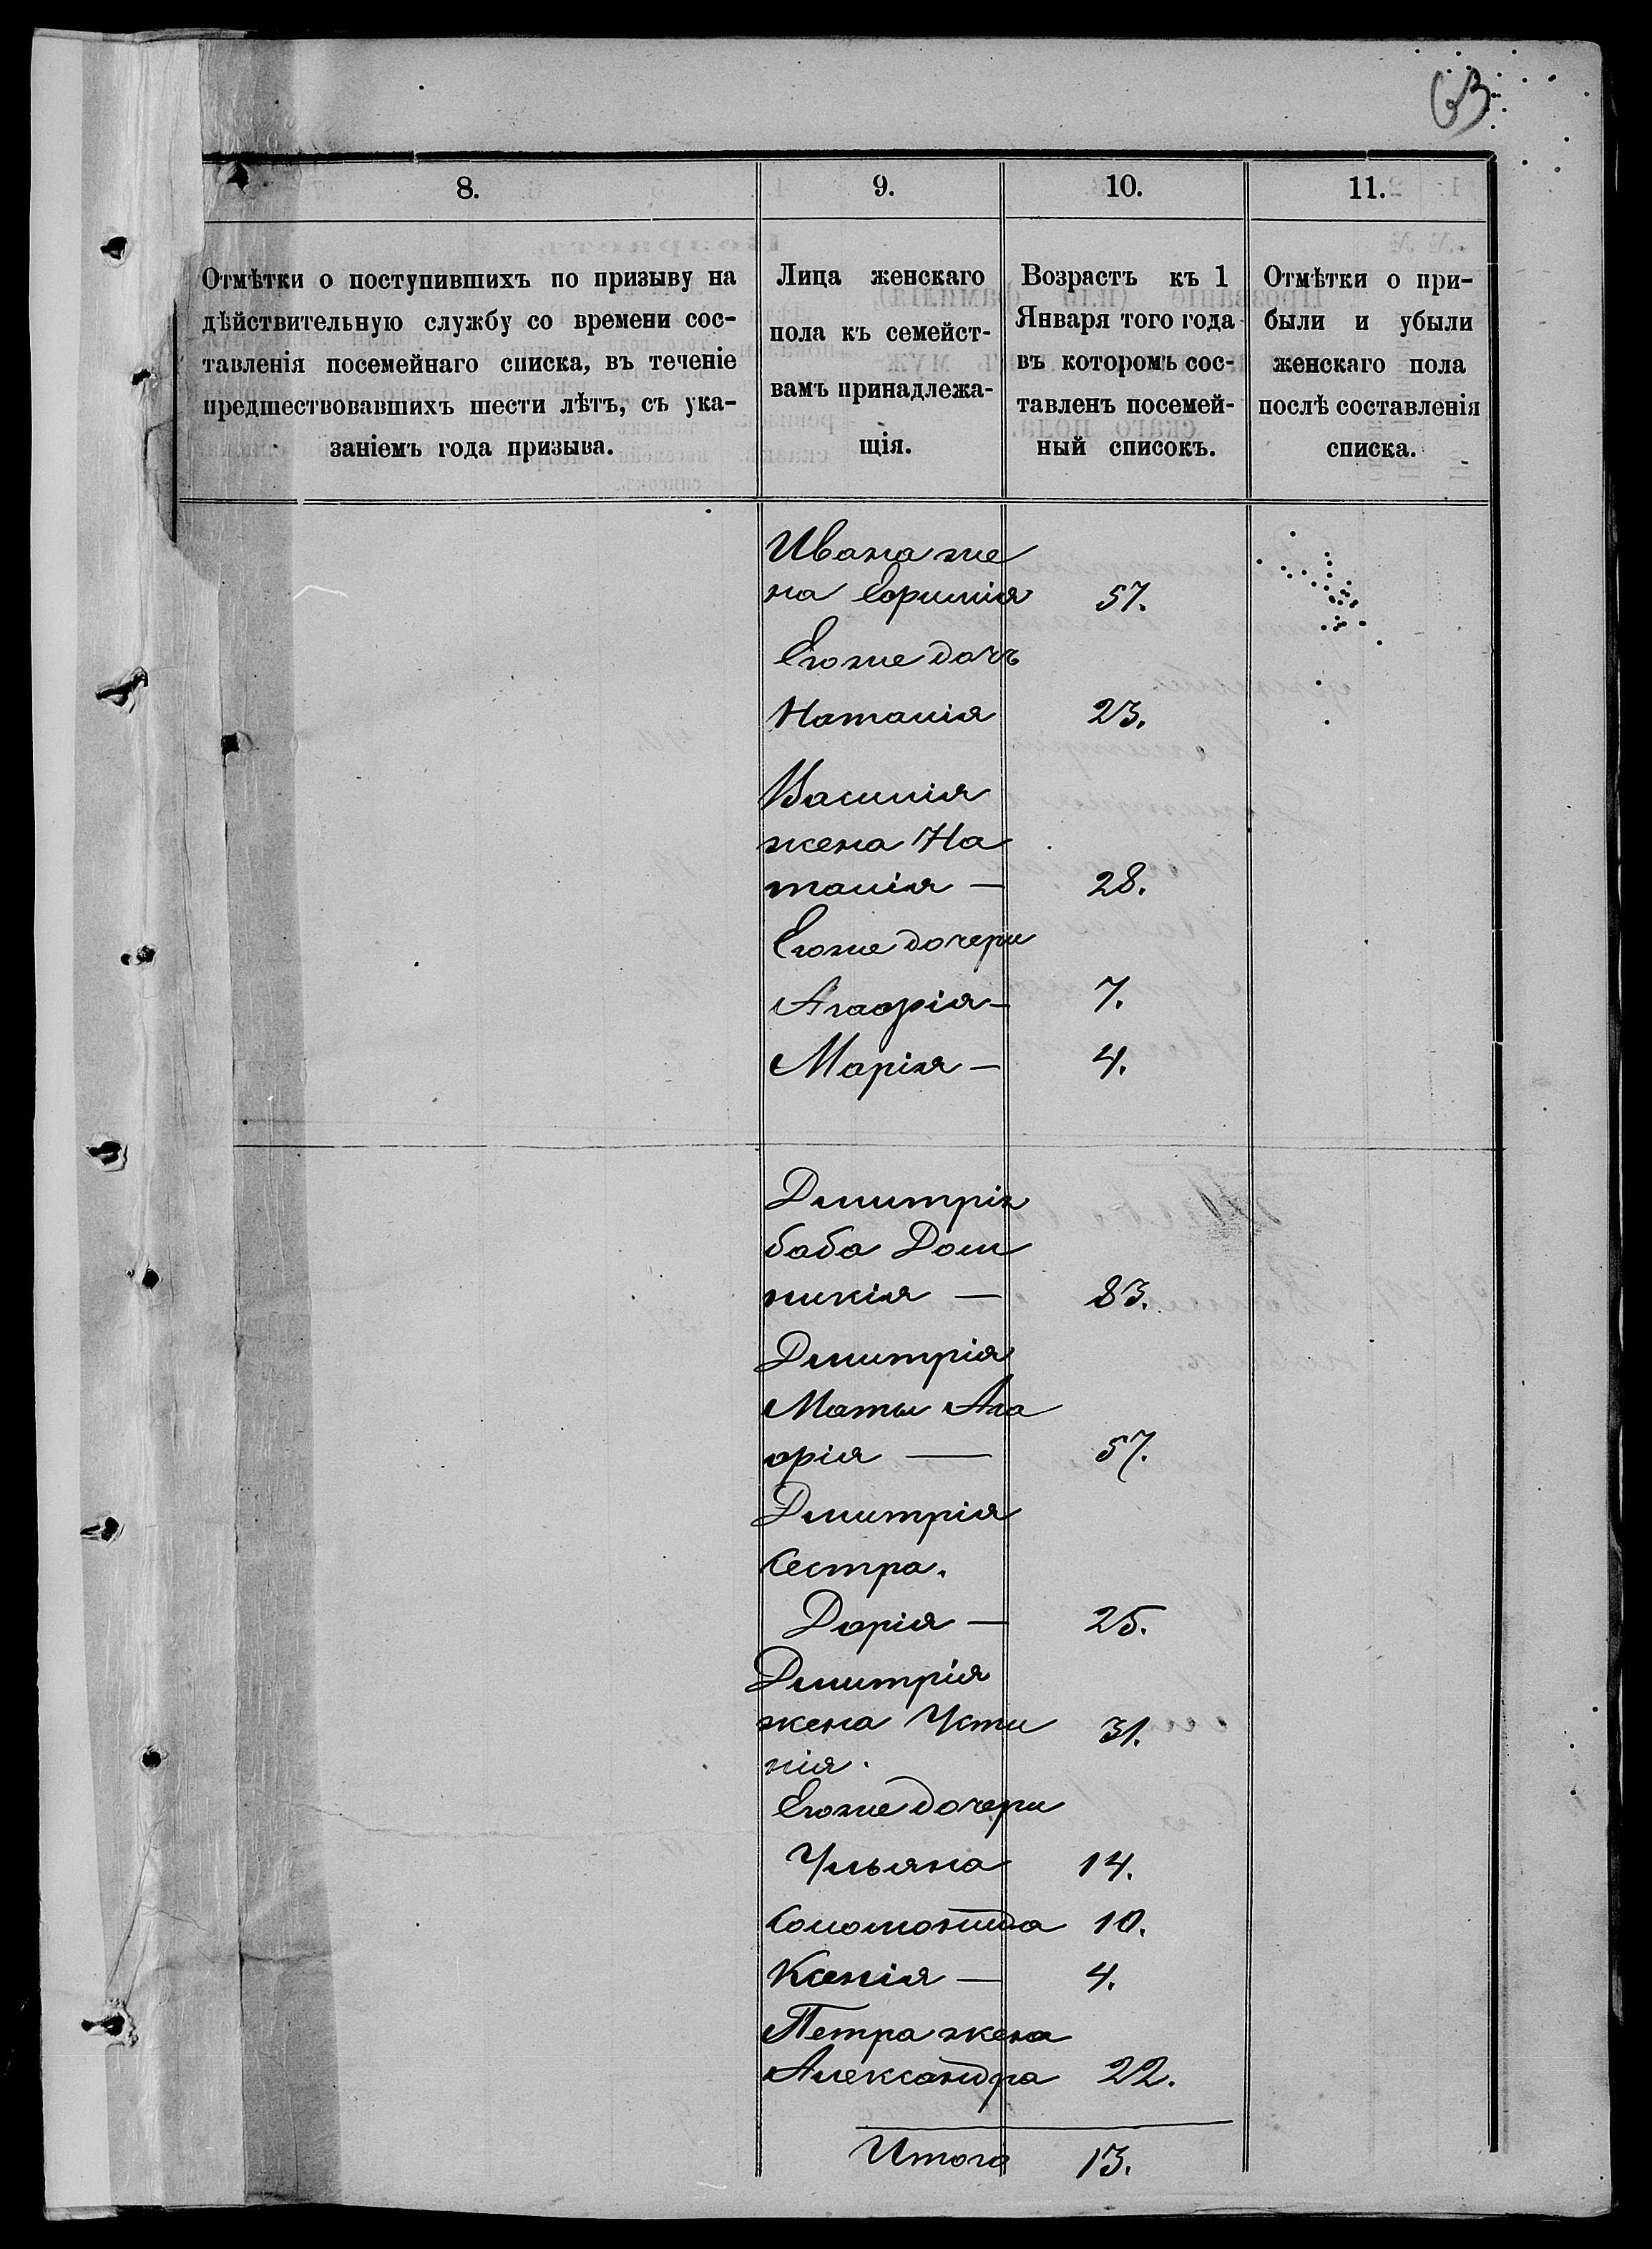 63
8. 9. 10. 11.
Отмѣтки о поступившихъ по призыву на
дѣйствительную службу со времени сос-
тавленія посемейнаго списка, въ теченіе
предшествовавшихъ шести лѣтъ, съ ука-
заніемъ года призыва.
Лица женскаго
пола къ семейст-
вамъ принадлежа-
щія.
Возрастъ къ 1
Января того года
въ которомъ сос-
тавленъ посемей-
ный списокъ.
Отмѣтки о при-
были и убыли
женскаго пола
послѣ составленія
списка.
Ивана же
на Ефимія 57.
Его же дочь
Наталія 23.
Василія
жена На
талія — 28.
Его же дочери
Агафія — 7.
Марія — 4.
Димитрія
баба Дом
никія — 83.
Димитрія
Маты Ага
фія — 57.
Димитрія
Сестра.
Дарія — 25.
Димитрія
жена Усти 31.
нія.
Его же дочери
Ульяна 14.
Соломонида 10.
Ксенія — 4.
Петра жена
Александра 22.
Итого 13.